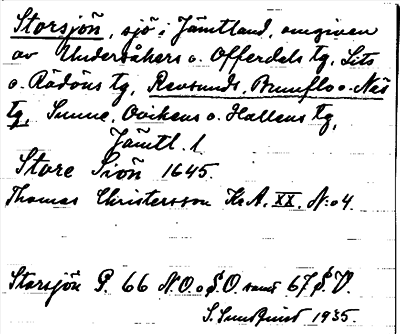 Storsjön, sjö i Jämtland, omgiven
av Undersåkers o. Offerdals tg, Lits
o. Rödöns tg, Revsunds, Brunflo o. Näs
tg, Sunne, Ovikens o. Hallens tg,
Jämtl. l.
Store Siön 1645.
Thomas Christersson K.A. XX. N:o 4.
Storsjön P. 66 N.O. o S.O. samt 67 S.V.
S. Sundquist 1935.